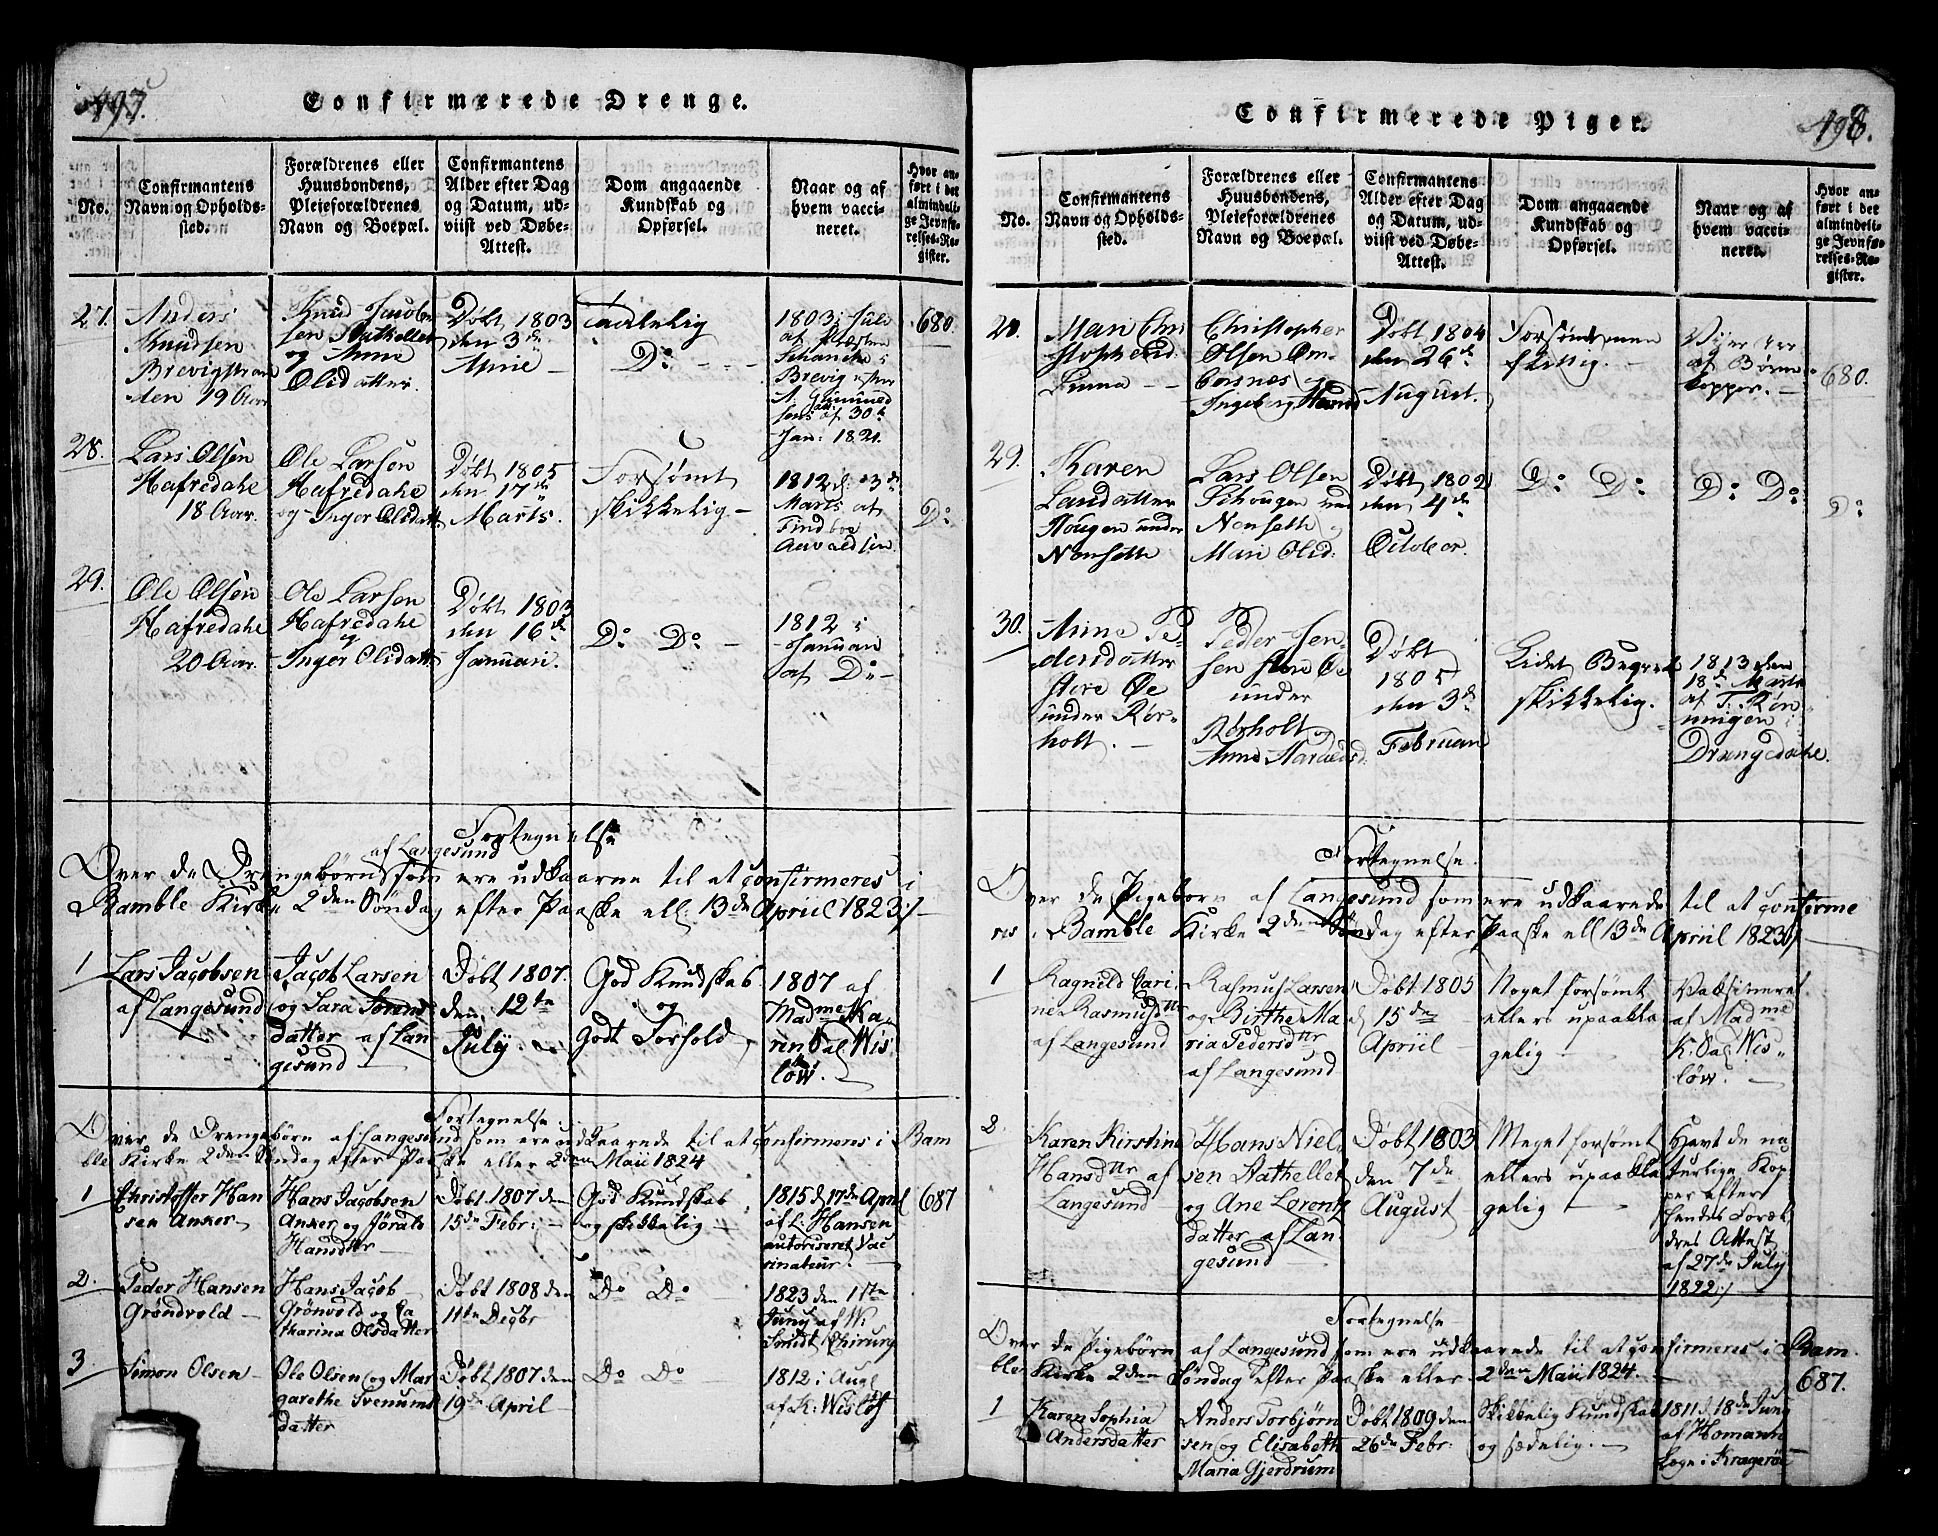 497.
Confirmerede Drenge.
No.
Confirmantens
Navn og Opholds-
sted.
Forældrenes eller
Huusbondens,
Pleieforældrenes
Navn og Boepæl.
Confirmantens
Alder efter Dag
og Datum, ud-
viist ved Døbe-
Attest.
Dom angaaende
Kundskab og
Opførsel.
Naar og af
hvem vacci-
neret.
Hvor an-
ført i det
almindeli-
ge Jevnfø-
relses-Re-
gister.
27.
Anders
Knudsen
Brevigstran
den 19 Aar
Knud Jacob
sen Stathellen
og Anne
Olidatter.
Døbt 1803
den 3de
Taalelig
D: -
1803 i Juli
af Præsten
Schanche i
Brevig
30te
Jan: 1821.
680.
28.
Lars Olsen
Hafredahl
18 Aar.
Ole Larsen
Hafredahl
og Inger Olidatt
Døbt 1805
den 17de
Marts.
Forsømt
skikkelig -
1812 d: 3de
Marts af
Find
D:
29.
Ole Olsen
Hafredahl
20 Aar.
Ole Larsen
Hafredahl
og
Inger Olidatt
Døbt 1803
den 16de
Januari.
D: D: -
1812 i
Januari
af D: -
Fortegnelse
Over de Drengebørn af Langesund som ere udkaarne til at confirmeres i
Bamble Kirke 2den Søndag efter Paaske ell: 13de Apriil 1823 /-
1
Lars Jacobsen
af Langesund
Jacob Larsen
og Sara Sørens
datter af Lan
gesund -
Døbt 1807.
den 12te
July. -
God Kundskab
og
godt Forhold
1807 af
Madme Ka
rin Sal. Wis
löw. -
Fortegnelse
Over de Drengebørn af Langesund som ere udkaarede til at confirmeres i Bam
ble Kirke 2den Søndag efter Paaske eller 2den Maii 1824
1
Christoffer Han
sen Anker
Hans Jacobsen
Anker og
Hansdtr -
Døbt 1807 den
15de Febr: -
God Kundskab
og skikkelig -
1815 d 17de April
af L: Hansen
autoriseret Vac
sinateur. -
687
2.
Peder Hansen
Gröndvold -
Hans Jacob
Grönvold og Ca
tharina Olsdatter
Døbt 1808 den
11te Decbr
Do Do
1823 den 17te
Juny af W:
Smidt Chirurg
3
Simon Olsen -
Ole Olsen og Mar
garethe Svenums
datter
Døbt 1807 den
19de April -
Do Do
1812 i Aug
af K: Wislöf
498.
Confirmerede Piger.
No.
Confirmantens
Navn og Opholds-
sted.
Forældrenes eller
Huusbondens,
Pleieforældrenes
Navn og Boepæl.
Confirmantens
Alder efter Dag
og Datum, ud-
viist ved Døbe-
Attest.
Dom angaaende
Kundskab og
Opførsel.
Naar og af
hvem vacci-
neret.
Hvor an-
ført i det
almindeli-
ge Jevnfø-
relses-Re-
gister.
28.
Mari Chri
stophersd:
Christopher
Olsen Om-
borsnes og
Ingeborg
Døbt 1804
den 26de
August.
Forsømt men
flittig. -
af Børne
kopper. -
680.
29.
Karen
Larsdatter
Hougen under
Nenseth
Lars Olsen
Hougen und
Nenseth
Mari Olid:
Døbt 1802
den 4de
October.
D: D:
D: D:
D:
30.
Anne Pe-
dersdatter
store Øe
under Rør-
holt. -
Peder Jen-
sen store Øe
under
Rørholt og
Anne
Døbt
1805
den 3de
Februari
Lidet Begreb
skikkelig.
1813 den
18de Marts
af T. Røn
ningen i
Drangedahl.
Fortegnelse.
Over de Pigebørn af Langesund som ere udkaarede til at confirme
res i Bamble Kirke 2den Søndag efter Paaske ell 13de Apriil 1823 /
1
Ragnild Cari
ne Rasmusdtr
af Langesund
Rasmus Larsen
og Birthe Ma
ria Pedersdtr
af Langesund
Døbt 1805
d 15de
Apriil -
Noget forsømt
ellers upaakla
gelig -
Vaksineret
af Madme
K: Sal: Wis
löw. -
2
Karen Kirstine
Hansdtr af
Langesund
Hans Niel
sen Stathellet
og Ane Lorentz
datter af Lan
gesund
Døbt 1803
den 7de
August
Meget forsømt
ellers upaakla
gelig -
Havt de na
turlige Kop
per efter
hendes Foræl
dres Attest
af 27de July
1822 /
Fortegnelse
Over de Pigebørn af Langesund som ere udkaarede til at confirmeres i Bam
ble Kirke 2den Søndag efter Paaske eller 2den Maii 1824. -
687.
1
Karen Sophia
Andersdatter
Anders Torbjørn
sen og Elisabeth
Maria Gjerdrum
Døbt 1809 den
26de Febr:
Skikkelig Kundskab
og sædelig. -
1811 d. 18de Juny
af Homann
Læge i Kragerøe